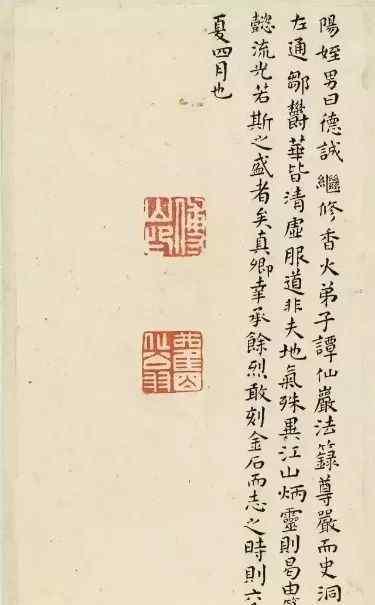 陽姪男曰德誠繼修香火弟子譚仙巖法籙尊嚴而史洞
左通鄒欝華皆清虛服道非夫地氣殊異江山炳靈則曷由
懿流光若斯之盛者矣真卿幸承餘烈敢刻金石而志之時則六
夏四月也
傅山印